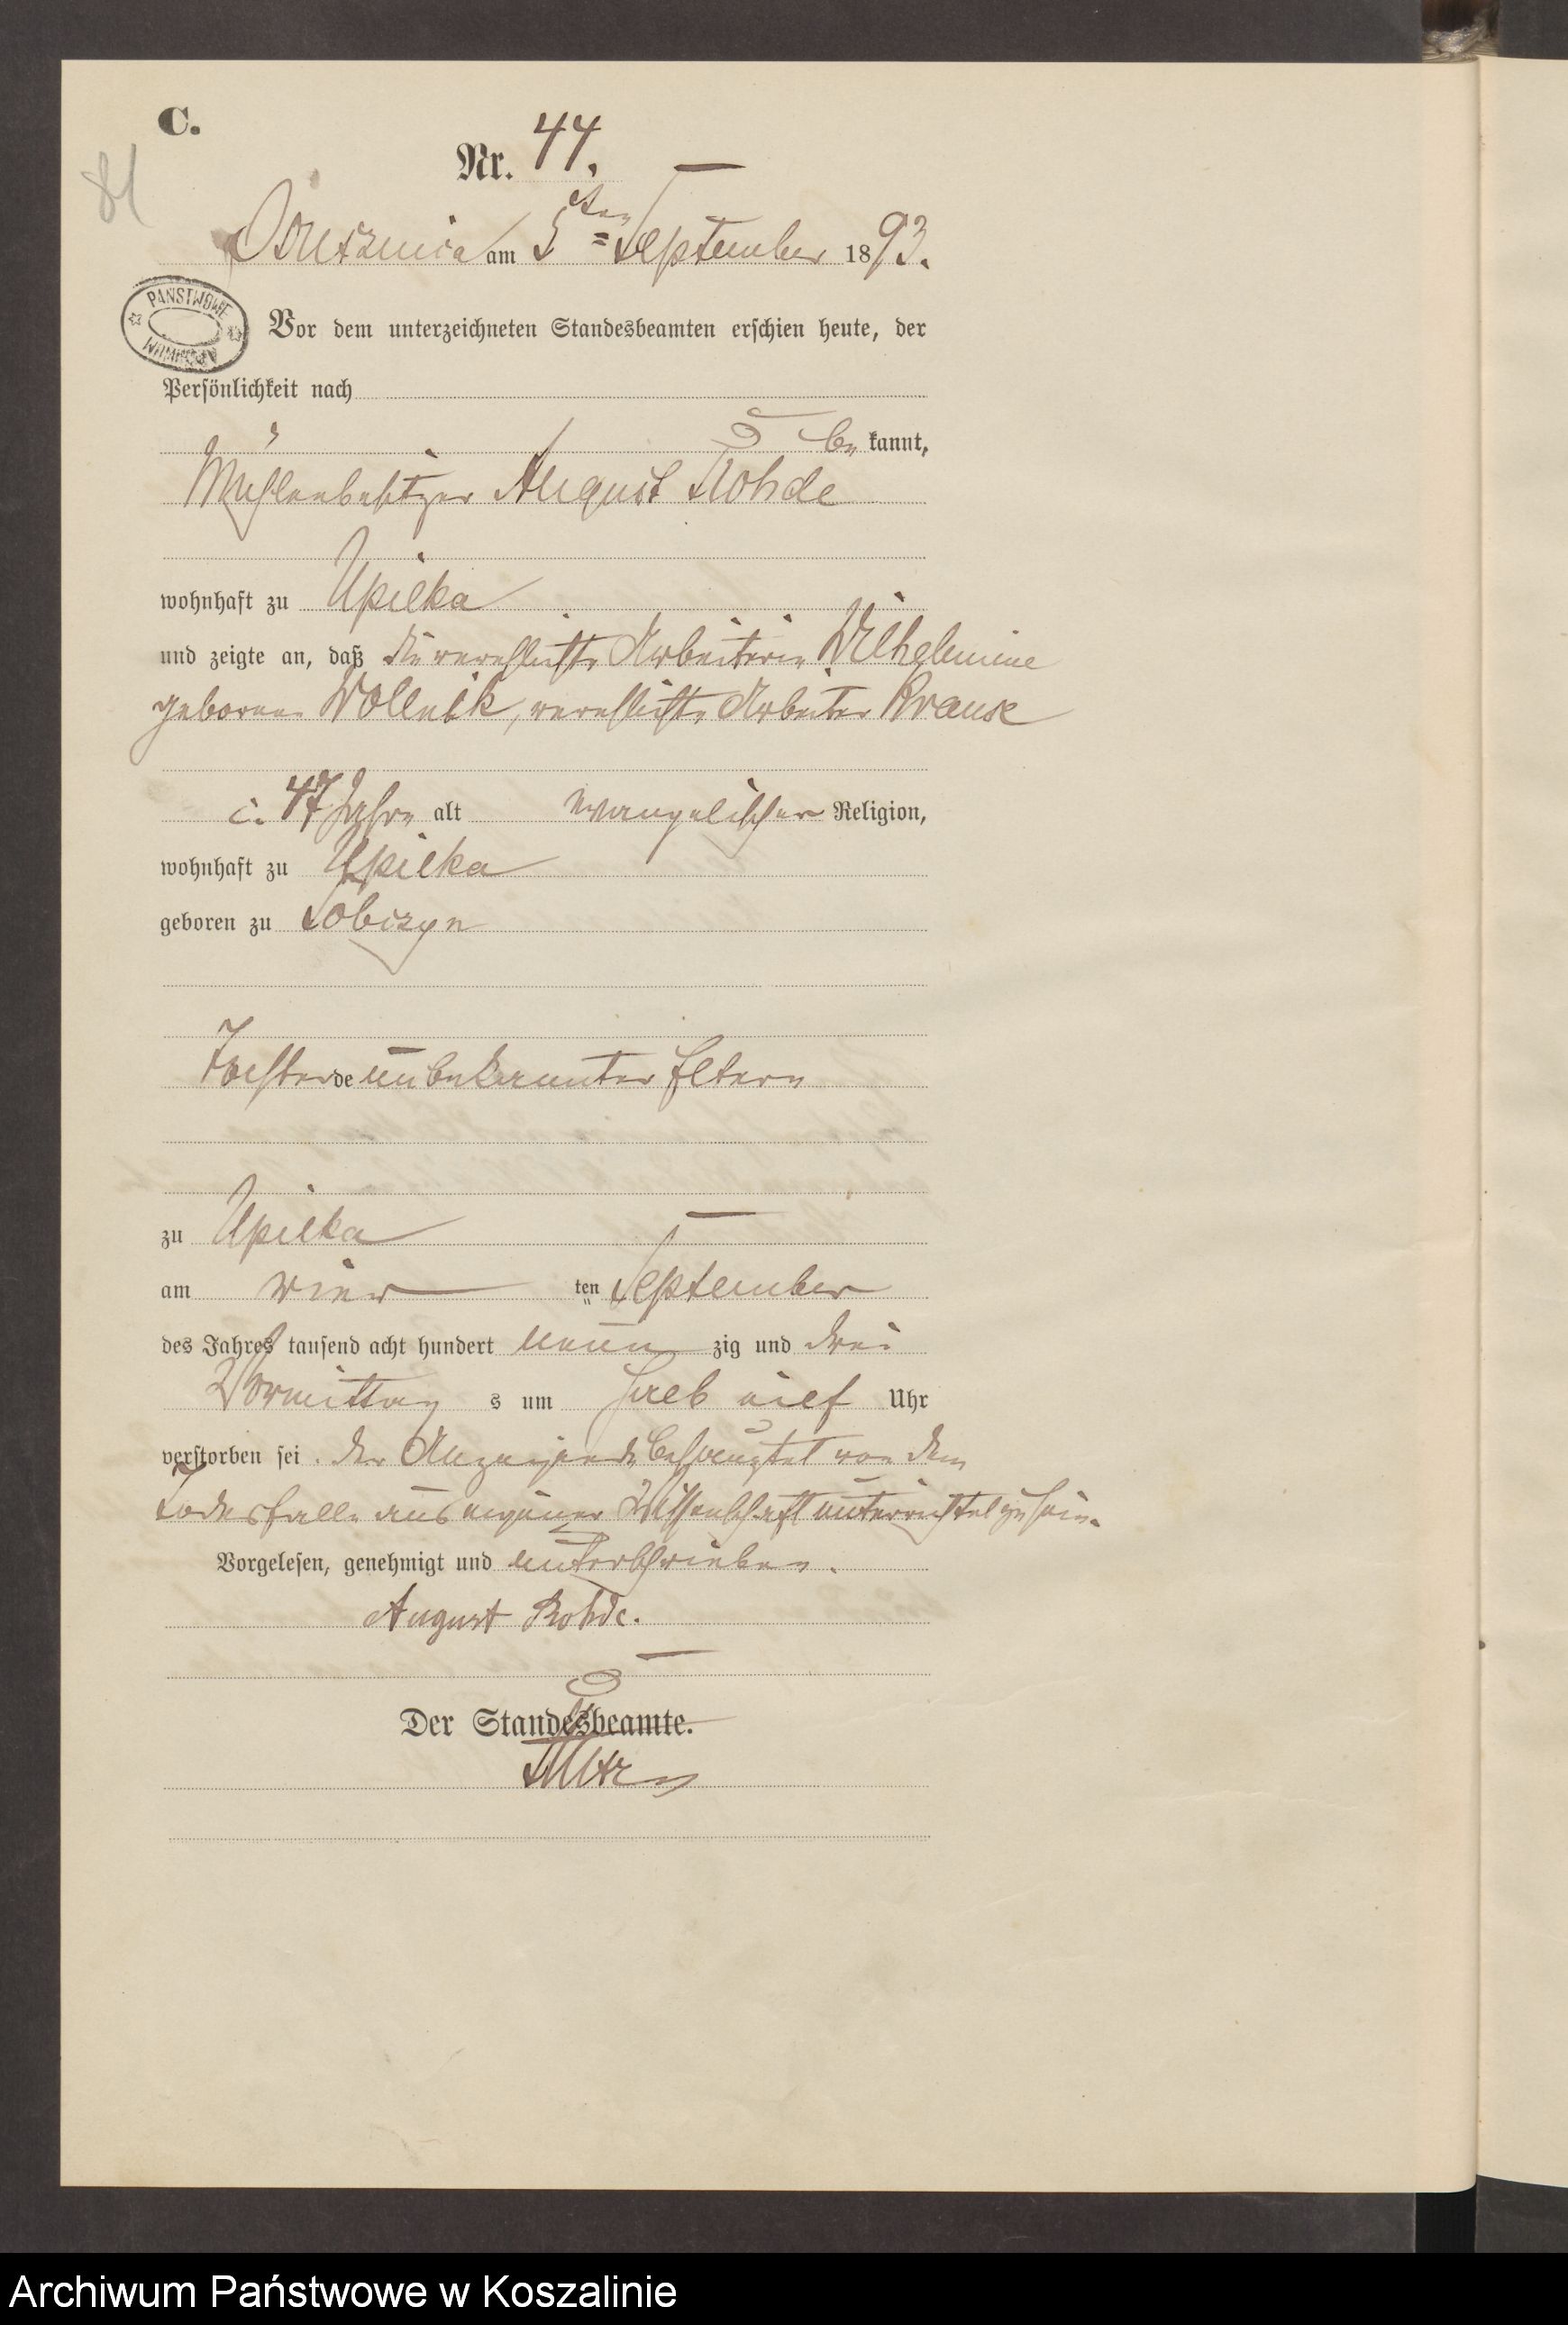 C.
81
Nr. 44.
Boruszmica am 5ten September 1893.
PAŃSTWOWE
ARCHIWUM
Vor dem unterzeichneten Standesbeamten erschien heute, der
Persönlichkeit nach
be kannt,
Mühlenbesitzer August Rohde
wohnhaft zu Upilka
und zeigte an, daß die verehlichte Arbeiterin Wilhelmine
geborene Wollnik, verehlichte Arbeiter Krause
c. 47 Jahre alt evangelischer Religion,
wohnhaft zu Upilka
geboren zu Sobczyn
Tochter de unbekannter Eltern
zu Upilka
am vier ten September
des Jahres tausend acht hundert neun zig und drei
Vormittag s um halb eilf Uhr
verstorben sei. Der Anzeigende behauptet von dem
Todesfalle aus eigener Wissenschaft unterrichtet zu sein.
Vorgelesen, genehmigt und unterschrieben.
August Rohde.
Der Standesbeamte.
Archiwum Państwowe w Koszalinie